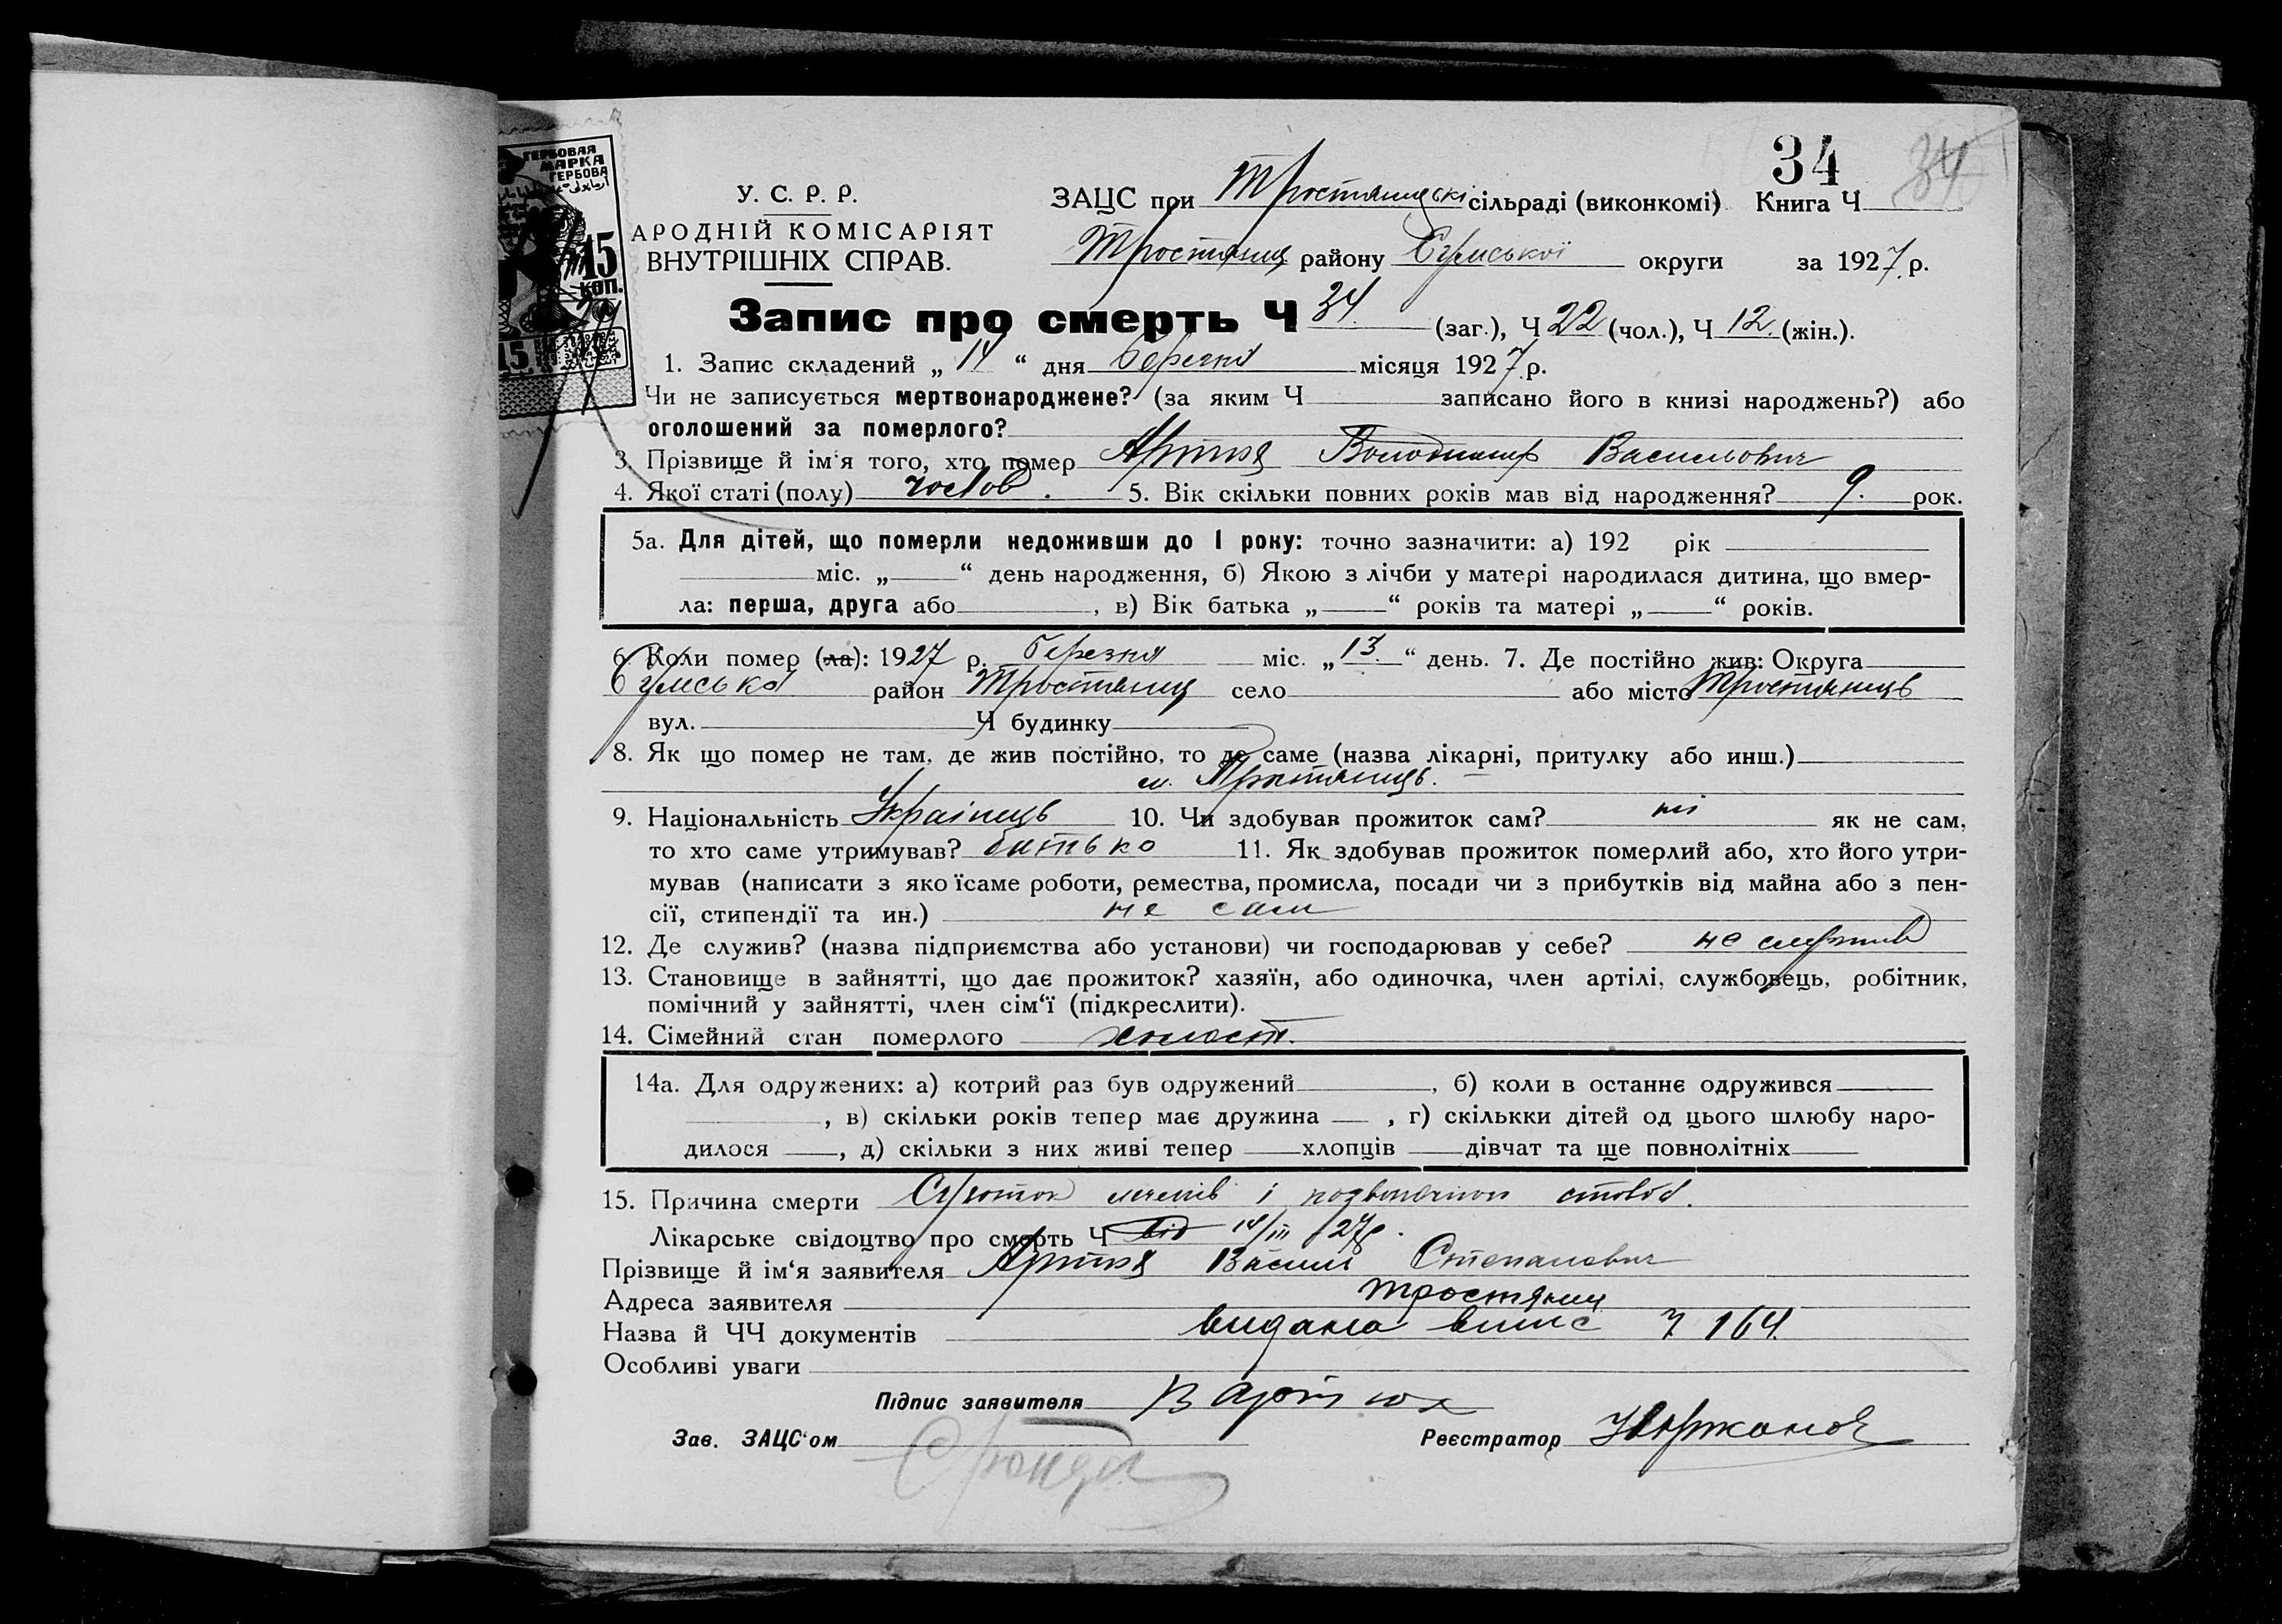 34 34
ГЕРБОВАЯ
МАРКА
ГЕРБОВА
15
КОП.
15
У. С. Р. Р.
ЗАЦС при Тростянецькі сільраді (виконкомі) Книга Ч
АРОДНІЙ КОМІСАРІЯТ
ВНУТРІШНІХ СПРАВ.
Тростянец району Сумської округи за 1927 р.
Запис про смерть Ч 34 (заг.), Ч 22 (чол.), Ч 12 (жін.).
1. Запис складений „ 14 “ дня березня місяця 1927 р.
Чи не записується мертвонароджене? (за яким Ч записано його в книзі народжень?) або
оголошений за померлого?
3. Прізвище й ім‘я того, хто помер Артюх Володимир Васильович
4. Якої статі (полу) чолов. 5. Вік скільки повних років мав від народження? 9. рок.
5а. Для дітей, що померли недоживши до 1 року: точно зазначити: а) 192 рік
міс. „ “ день народження, б) Якою з лічби у матері народилася дитина, що вмер-
ла: перша, друга або , в) Вік батька „ “ років та матері „ “ років.
6. Коли помер (ла): 1927 р. березня міс. „ 13 “ день. 7. Де постійно жив: Округа
Сумська район Тростянец село або місто Тростянець
вул. Ч будинку
8. Як що помер не там, де жив постійно, то де саме (назва лікарні, притулку або инш.)
м. Тростянець.
9. Національність Українець 10. Чи здобував прожиток сам? ні як не сам,
то хто саме утримував? батько 11. Як здобував прожиток померлий або, хто його утри-
мував (написати з якоїсаме роботи, ремества, промисла, посади чи з прибутків від майна або з пен-
сії, стипендії та ин.) не сам
12. Де служив? (назва підприємства або установи) чи господарював у себе? не служив
13. Становище в зайнятті, що дає прожиток? хазяїн, або одиночка, член артілі, службовець, робітник,
помічний у зайнятті, член сім‘ї (підкреслити).
14. Сімейний стан померлого холост.
14а. Для одружених: а) котрий раз був одружений , б) коли в останнє одружився
, в) скільки років тепер має дружина , г) скількки дітей од цього шлюбу наро-
дилося , д) скільки з них живі тепер хлопців дівчат та ще повнолітніх
15. Причина смерти і стовба.
Лікарське свідоцтво про смерть Ч від 14/III 27р.
Прізвище й ім‘я заявителя Артюх Василь Степанович
Адреса заявителя Тростянец
Назва й ЧЧ документів видана випис Ч 164
Особливі уваги
Підпис заявителя В Артюх
Зав. ЗАЦС‘ом Реєстратор